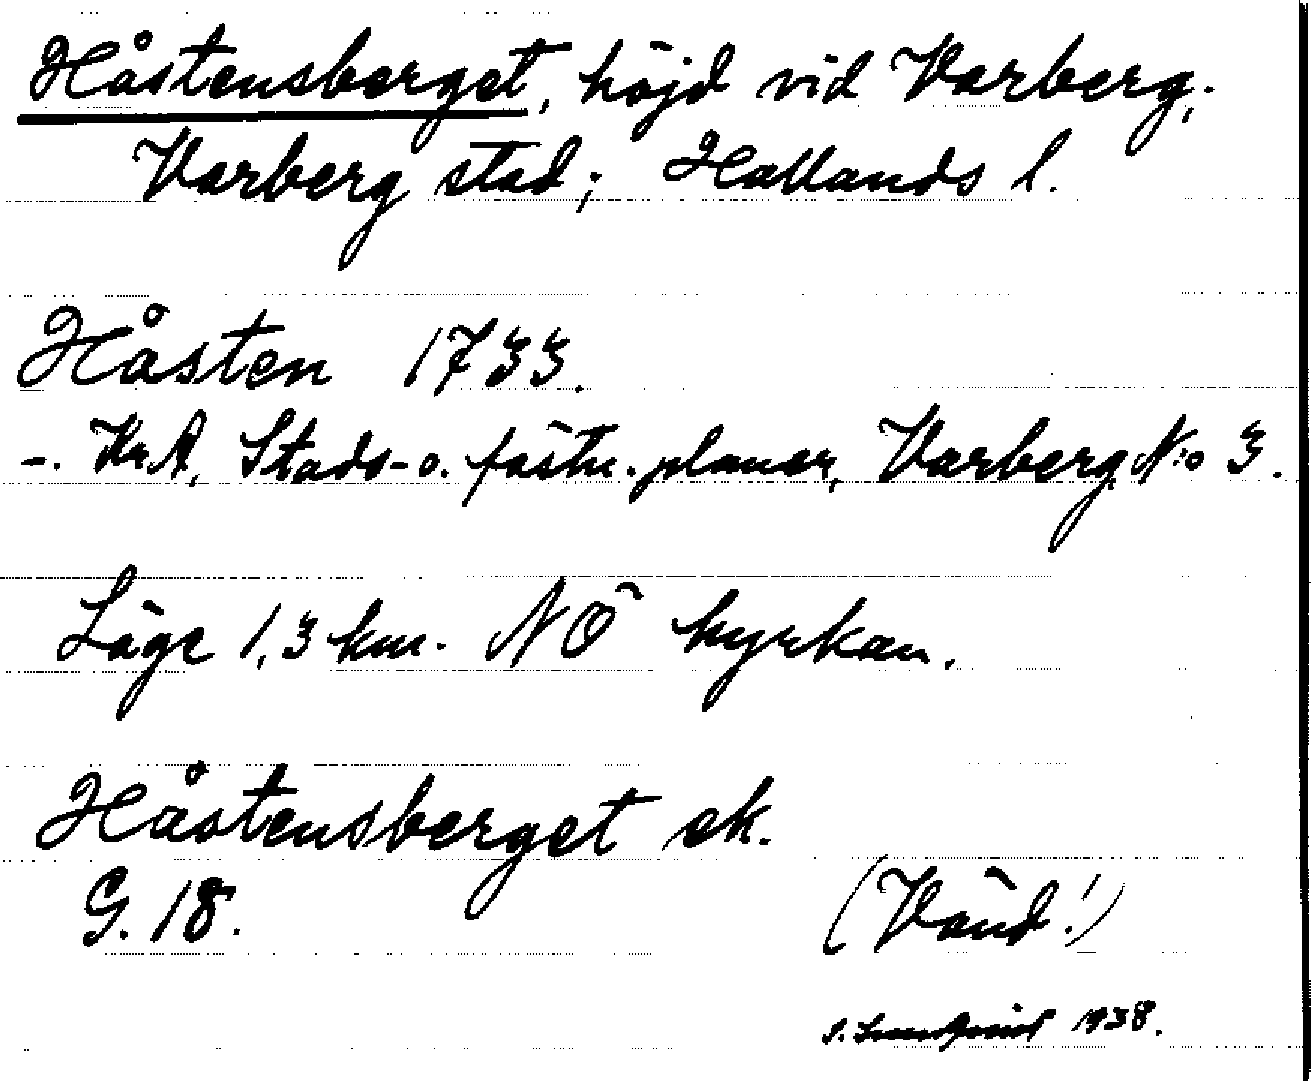 Håstensberget, höjd vid Varberg,
Varberg stad; Hallands l.
Håsten 1733.
-. Kr.A, Stads- o. fästn. planer, Varberg N:o 3.
Läge 1,3 km. NÖ kyrkan.
Håstensberget ek.
G. 18.
(Vänd!)
S. 1938.